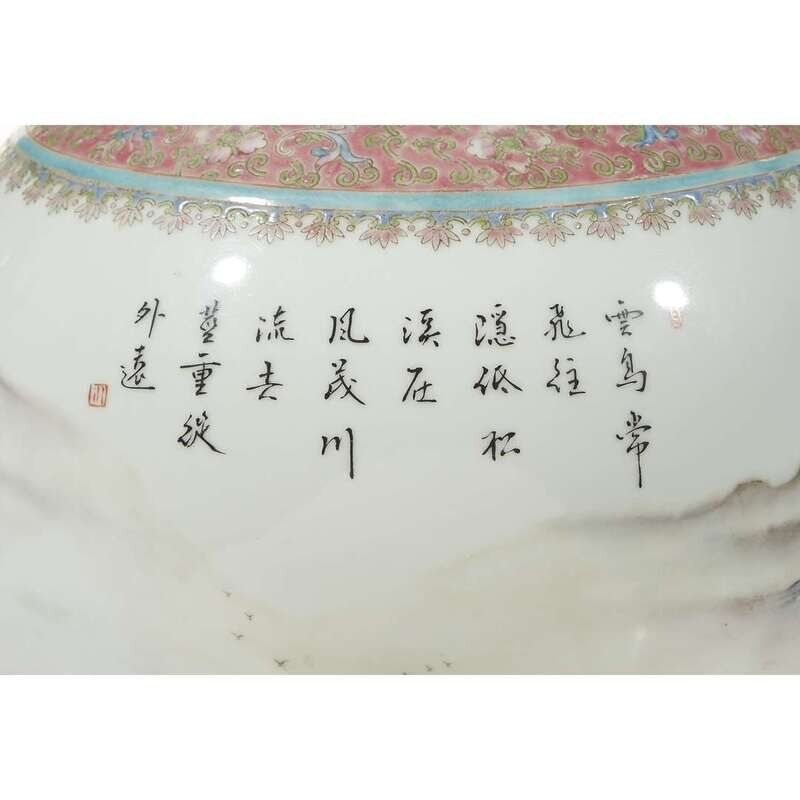 雲鳥常
飛往
隱低松
溪在
風茂川
流去
藍重從
外遠